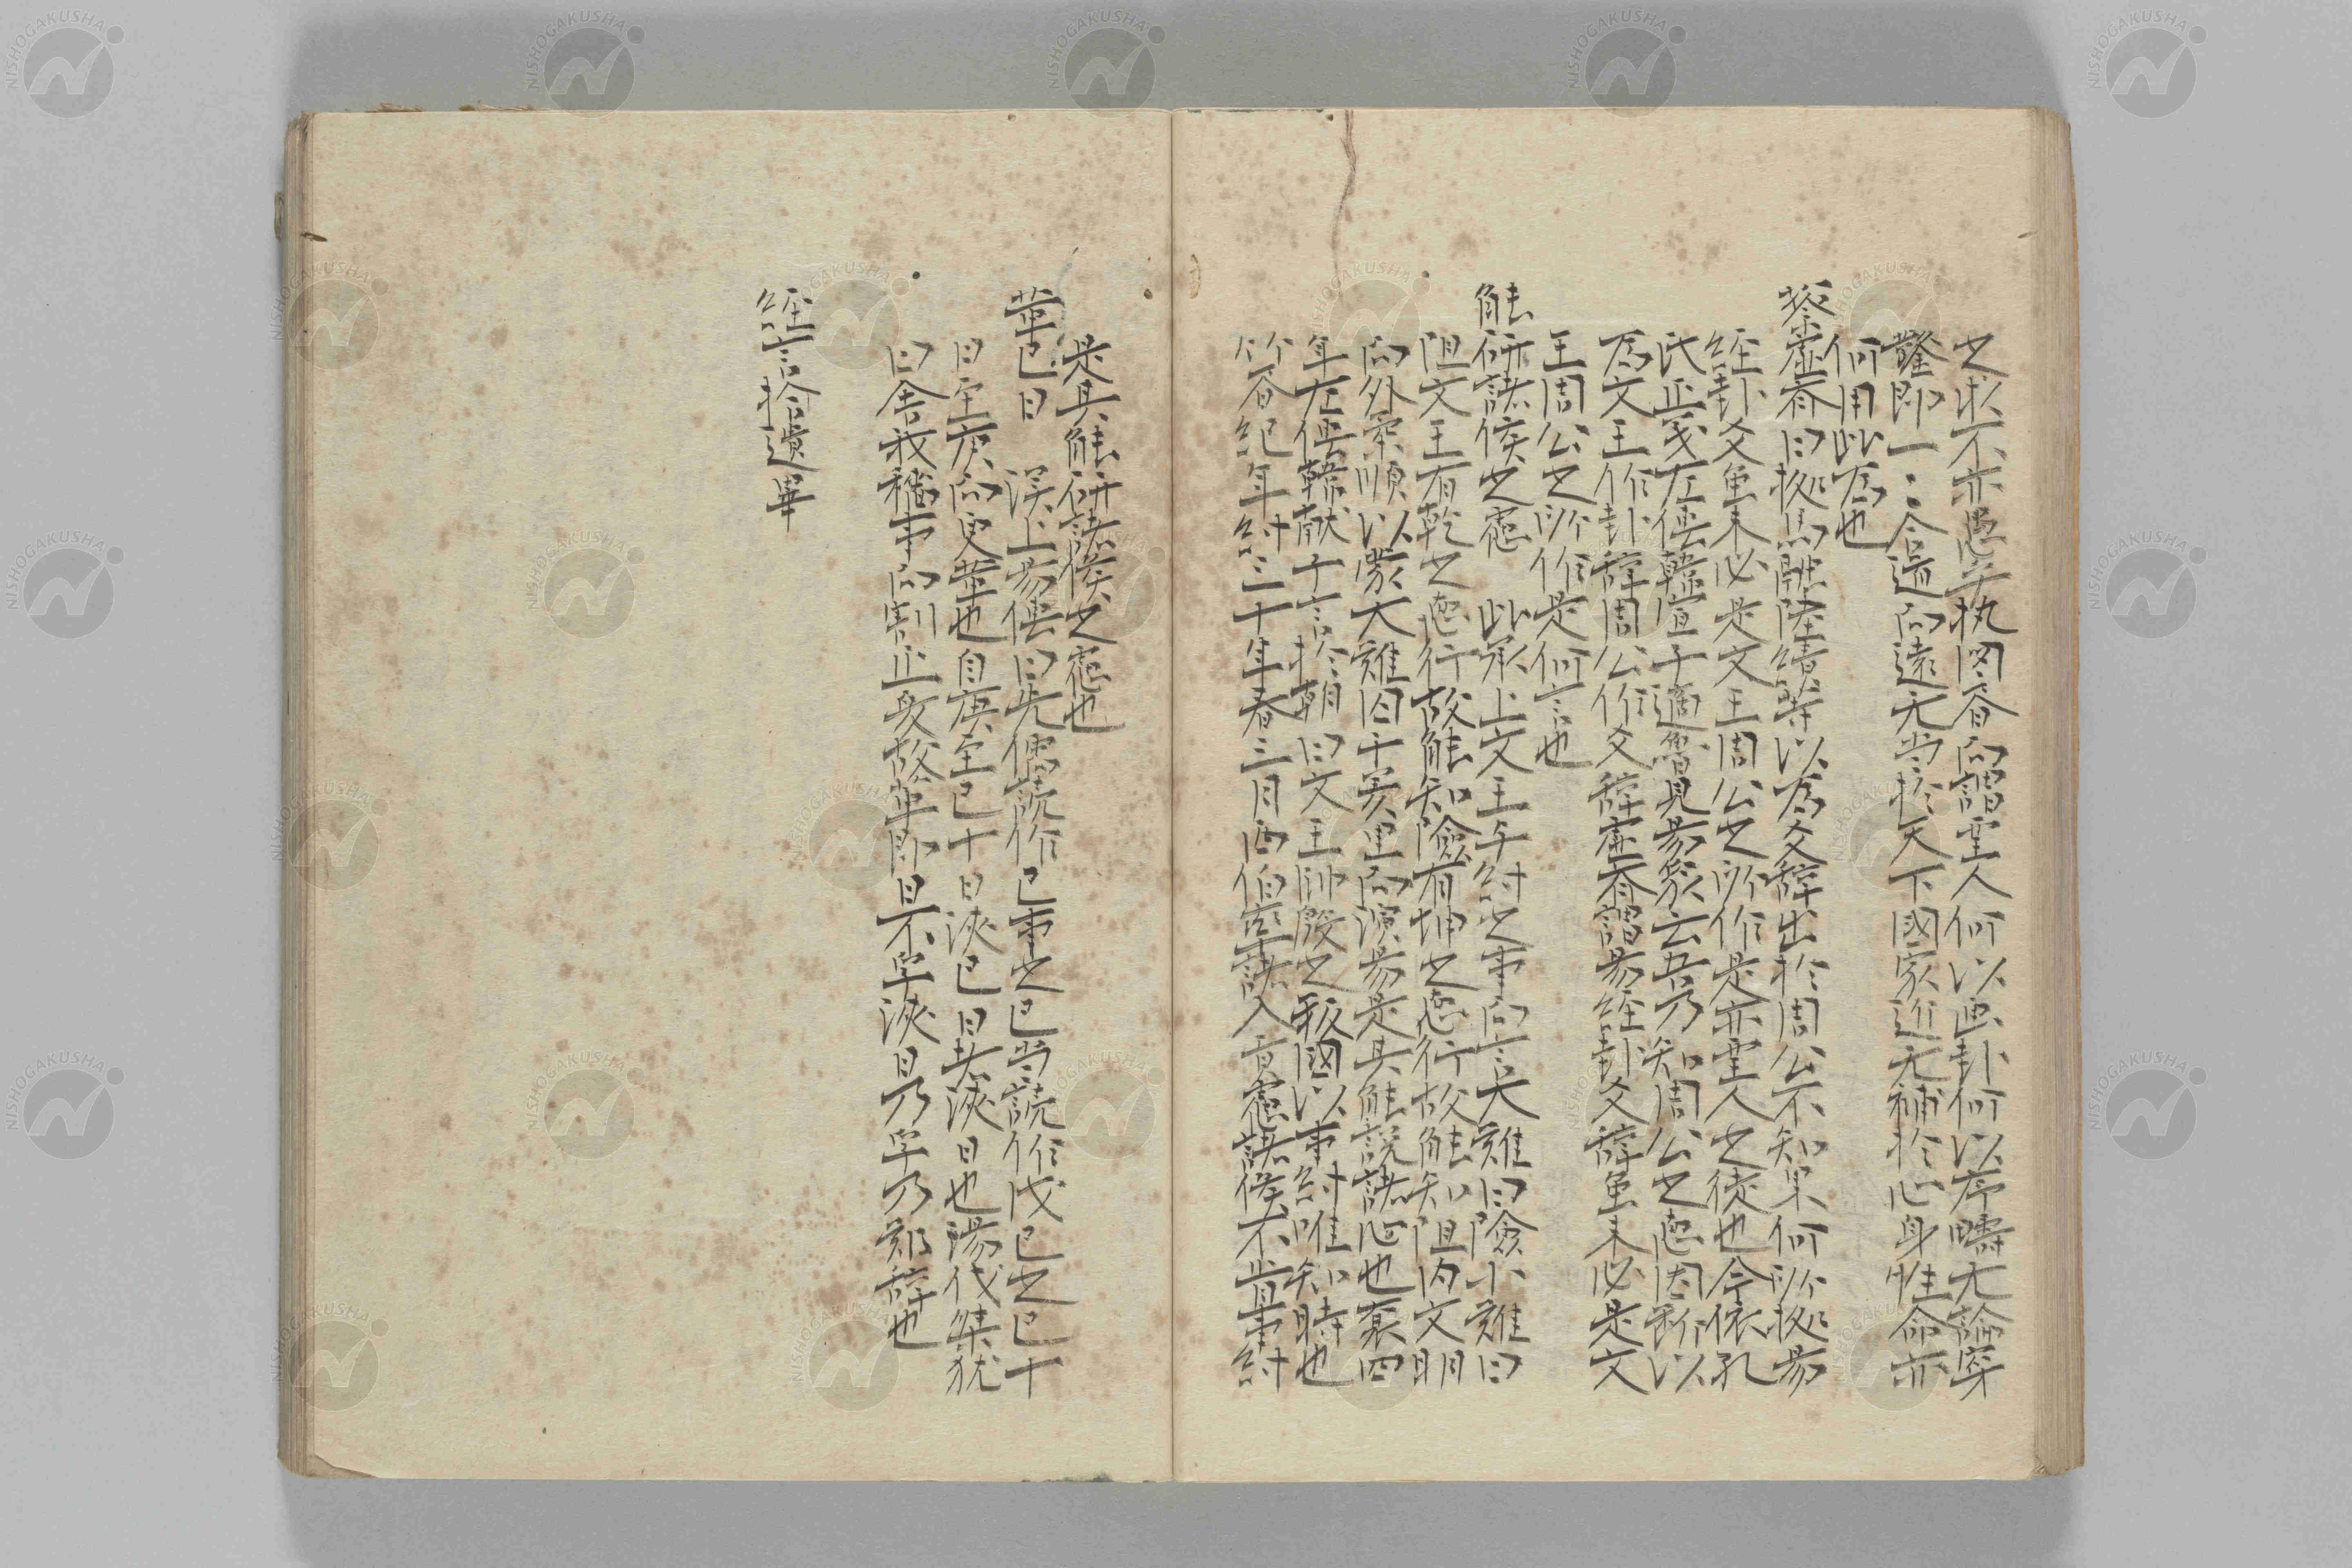 之求不亦愚乎執図者向謂聖人何以画卦何以序疇无論穿
鑿即一〻合道向遠无当於天下國家近无補於心身性命亦
何用此為也
蔡虚斎曰拠馬融陸績等以為爻辞出於周公不知果何所拠易
経卦爻虽未必是文王周公之所作是亦聖人之徒也今依孔
氏正義左伝韓宣子適魯見易象云吾乃知周公之徳因断以
為文王作卦辞周公作爻辞虚斎謂易経卦爻辞虽未必是文
王周公之所作是何言也
能研諸侯之慮 此承上文王与紂之事向言大難曰險小難曰
阻文王有乾之徳行故能知險有坤之徳行故能知阻内文明
向外柔順以蒙大難囚于羑里向演易是其能説諸心也襄四
年左伝韓献子言於朝曰文王帥殷之叛國以事紂唯知時也
竹書紀年紂三十年春三月西伯率諸入貢慮諸侯不肯事紂
是其能研諸侯之慮也
革已日 漢上易伝曰先儒読作已事之已当読作戊己之己十
日至庚向更革也自庚至己十日浹己日共浹日也湯伐桀犹
曰舎我穡事向割正夏故革即日不孚浹日乃孚乃難辞也
経言拾遺畢